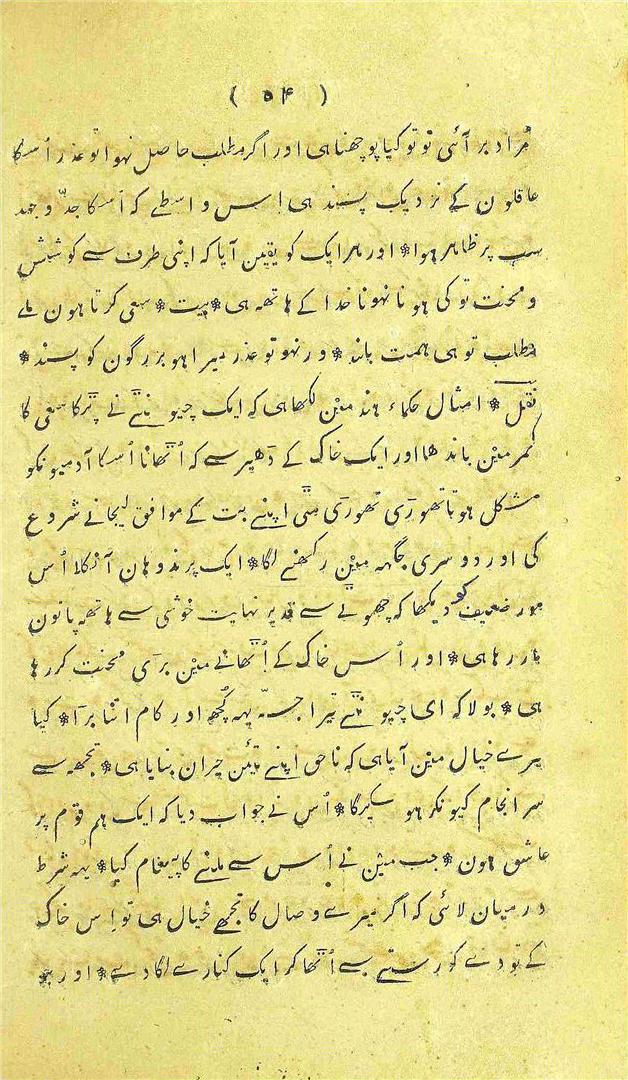 ( ۵۴ )
مُراد بر آئی تو تو کیا پوچھنا ہی اور اگر مطلب حاصل نہوا تو عذر اُسکا
عاقلون کے نزدیک پسند ہی اِس واسطے کہ اُسکا جدّ و جہد
سب پر ظاہر ہوا * اور ہر ایک کو یقین آیا کہ اپنی طرف سے کوشش
و محنت تو کی ہونا نہونا خدا کے ہاتھہ ہی * بیت * سعی کرتا ہون ملے
مطلب تو ہی ہمت بلند * ورنہو تو عذر میرا ہو بزرگون کو پسند *
نقل * امثال حکماء ہند مین لکھا ہی کہ ایک چیونٹے نے پٹکا سعی کا
کمر مین باندھا اور ایک خاک کے ڈھیر سے کہ اُٹھانا اُسکا آدمیونکو
مشکل ہوتا تھوڑی تھوڑی مٹی اپنے بت کے موافق لیجانے شروع
کی اور دوسری جگہہ مین رکھنے لگا * ایک پرند وہان آ نکلا اُس
مور ضعیف کو دیکھا کہ چھوٹے سے قد پر نہایت خوشی سے ہاتھہ پانون
مار رہا ہی * اور اُس خاک کے اُٹھانے مین بڑی محنت کر رہا
ہی * بولا کہ ای چیونٹے تیرا جسّہ یہہ کُچھہ اور کام اتنا بڑا * کیا
تیرے خیال مین آیا ہی کہ ناحق اپنے تئین حیران بنایا ہی * تجھہ سے
سر انجام کیونکر ہو سکیگا * اُس نے جواب دیا کہ ایک ہم قوم پر
عاشق ہون * جب مین نے اُس سے ملنے کا پیغام کیا * یہہ شرط
درمیان لائی کہ اگر میرے وصال کا تجھے خیال ہی تو اِس خاک
کے تودے کو رستے سے اُٹھا کر ایک کنارے لگا دے * اور جو